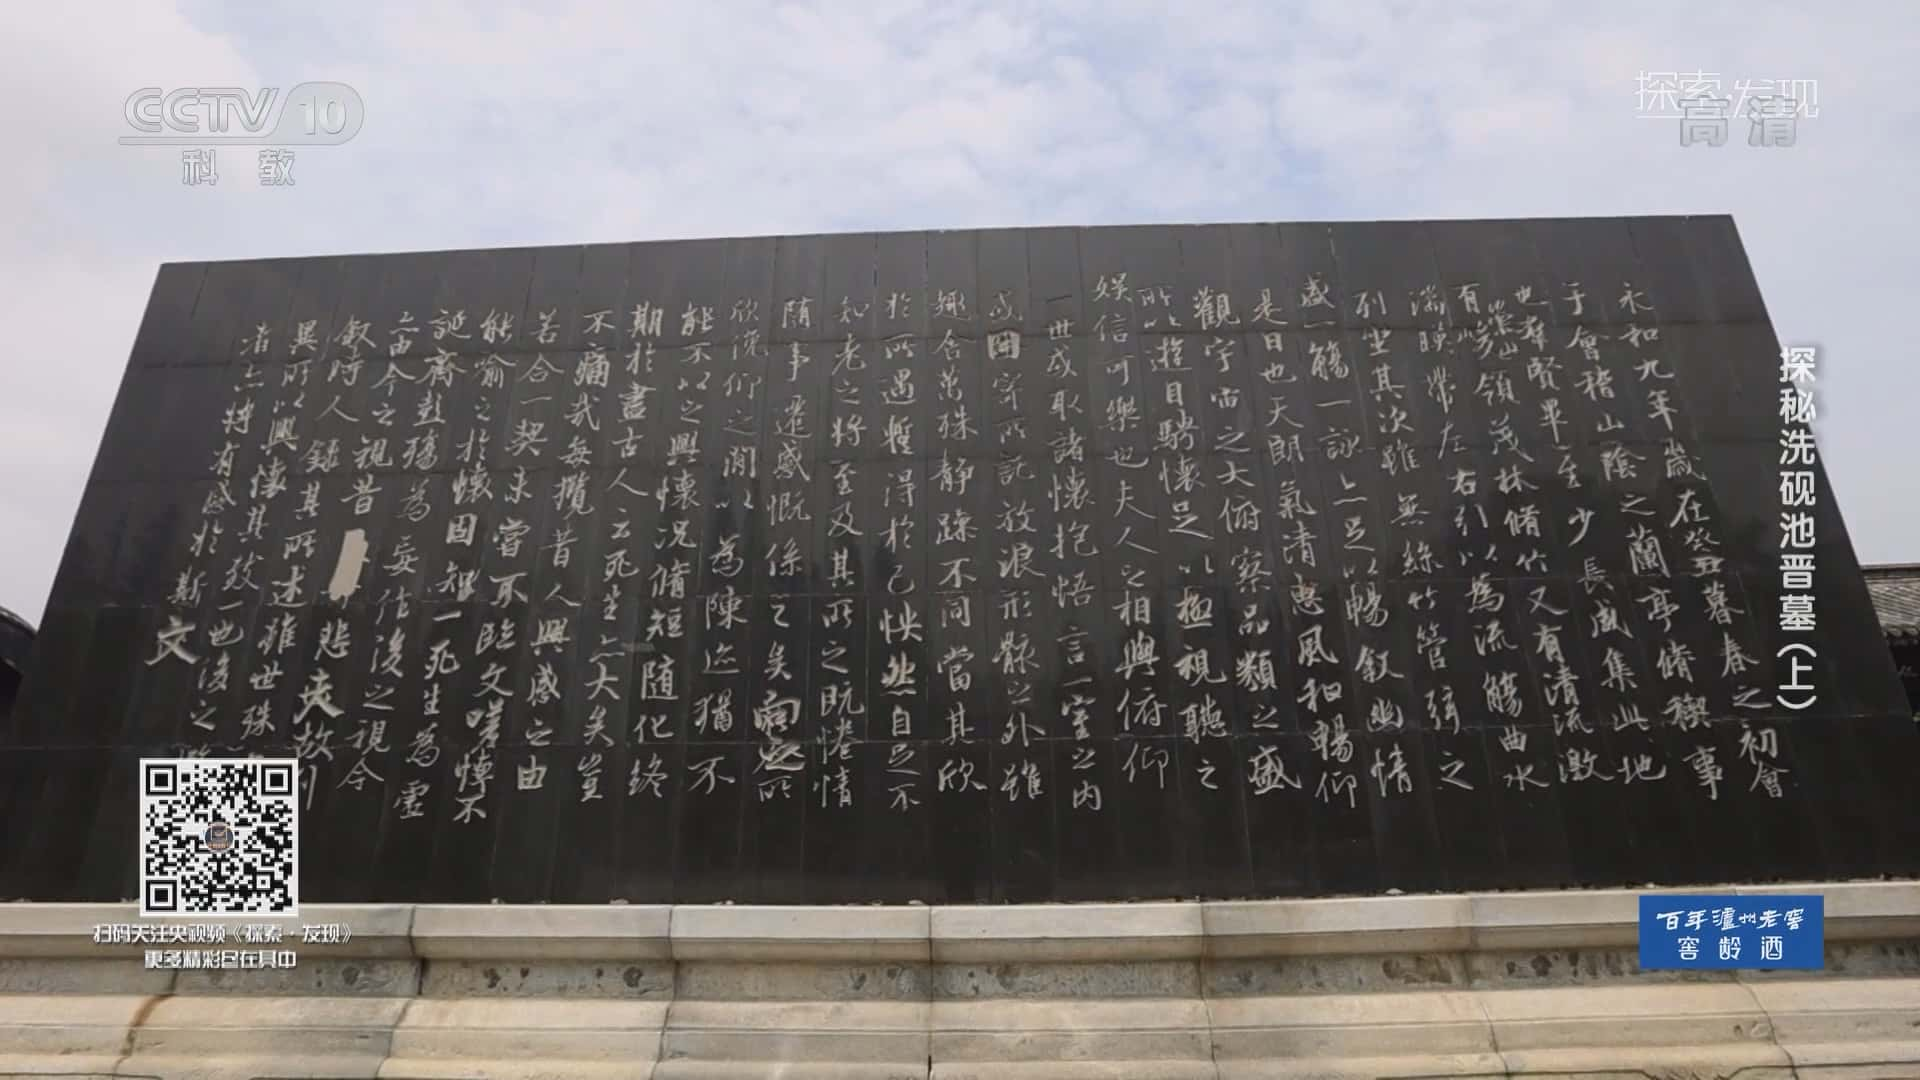 CCTV 10
科教
探索·发现
高清
永和九年歲在癸丑暮春之初會
于會稽山陰之蘭亭脩稧事
也羣賢畢至少長咸集此地
有崇山峻領茂林脩竹又有清流激
湍暎帶左右引以為流觴曲水
列坐其次雖無絲竹管弦之
盛一觴一詠亦足以暢敘幽情
是日也天朗氣清惠風和暢仰
觀宇宙之大俯察品類之盛
所以遊目騁懷足以極視聽之
娛信可樂也夫人之相與俯仰
一世或取諸懷抱悟言一室之內
或因寄所託放浪形骸之外雖
趣舍萬殊靜躁不同當其欣
於所遇暫得於己怏然自足不
知老之將至及其所之既惓情
隨事遷感慨係之矣向之所
欣俛仰之閒以為陳迹猶不
能不以之興懷況脩短隨化終
期於盡古人云死生亦大矣豈
不痛哉每攬昔人興感之由
若合一契未嘗不臨文嗟悼不
能喻之於懷固知一死生為虛
誕齊彭殤為妄作後之視今
亦由今之視昔悲夫故列
敘時人錄其所述雖世殊
異所以興懷其致一也後之
者亦將有感於斯文
探秘洗砚池晋墓(上)
扫码关注央视频《探索·发现》
更多精彩尽在其中
百年泸州老窖
窖龄酒